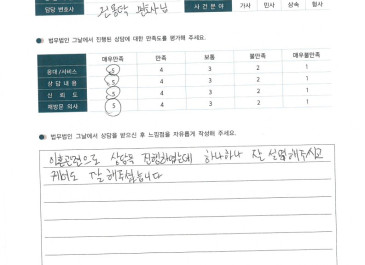 담당 변호사 전용덕 변호사님 사건분야 가사 민사 상속 형사
법무법인 그날에서 진행된 상담에 대한 만족도를 평가해 주세요.
매우만족 만족 보통 불만족 매우불만족
응대/서비스 5 4 3 2 1
상담내용 5 4 3 2 1
신뢰도 5 4 3 2 1
재방문 의사 5 4 3 2 1
법무법인 그날에서 상담을 받으신 후 느낌점을 자유롭게 작성해 주세요.
이혼관련으로 상담을 진행하였는데 하나하나 잘 설명해주시고
케어도 잘 해주셨습니다